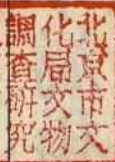 北京市文
化局文物
調查研究